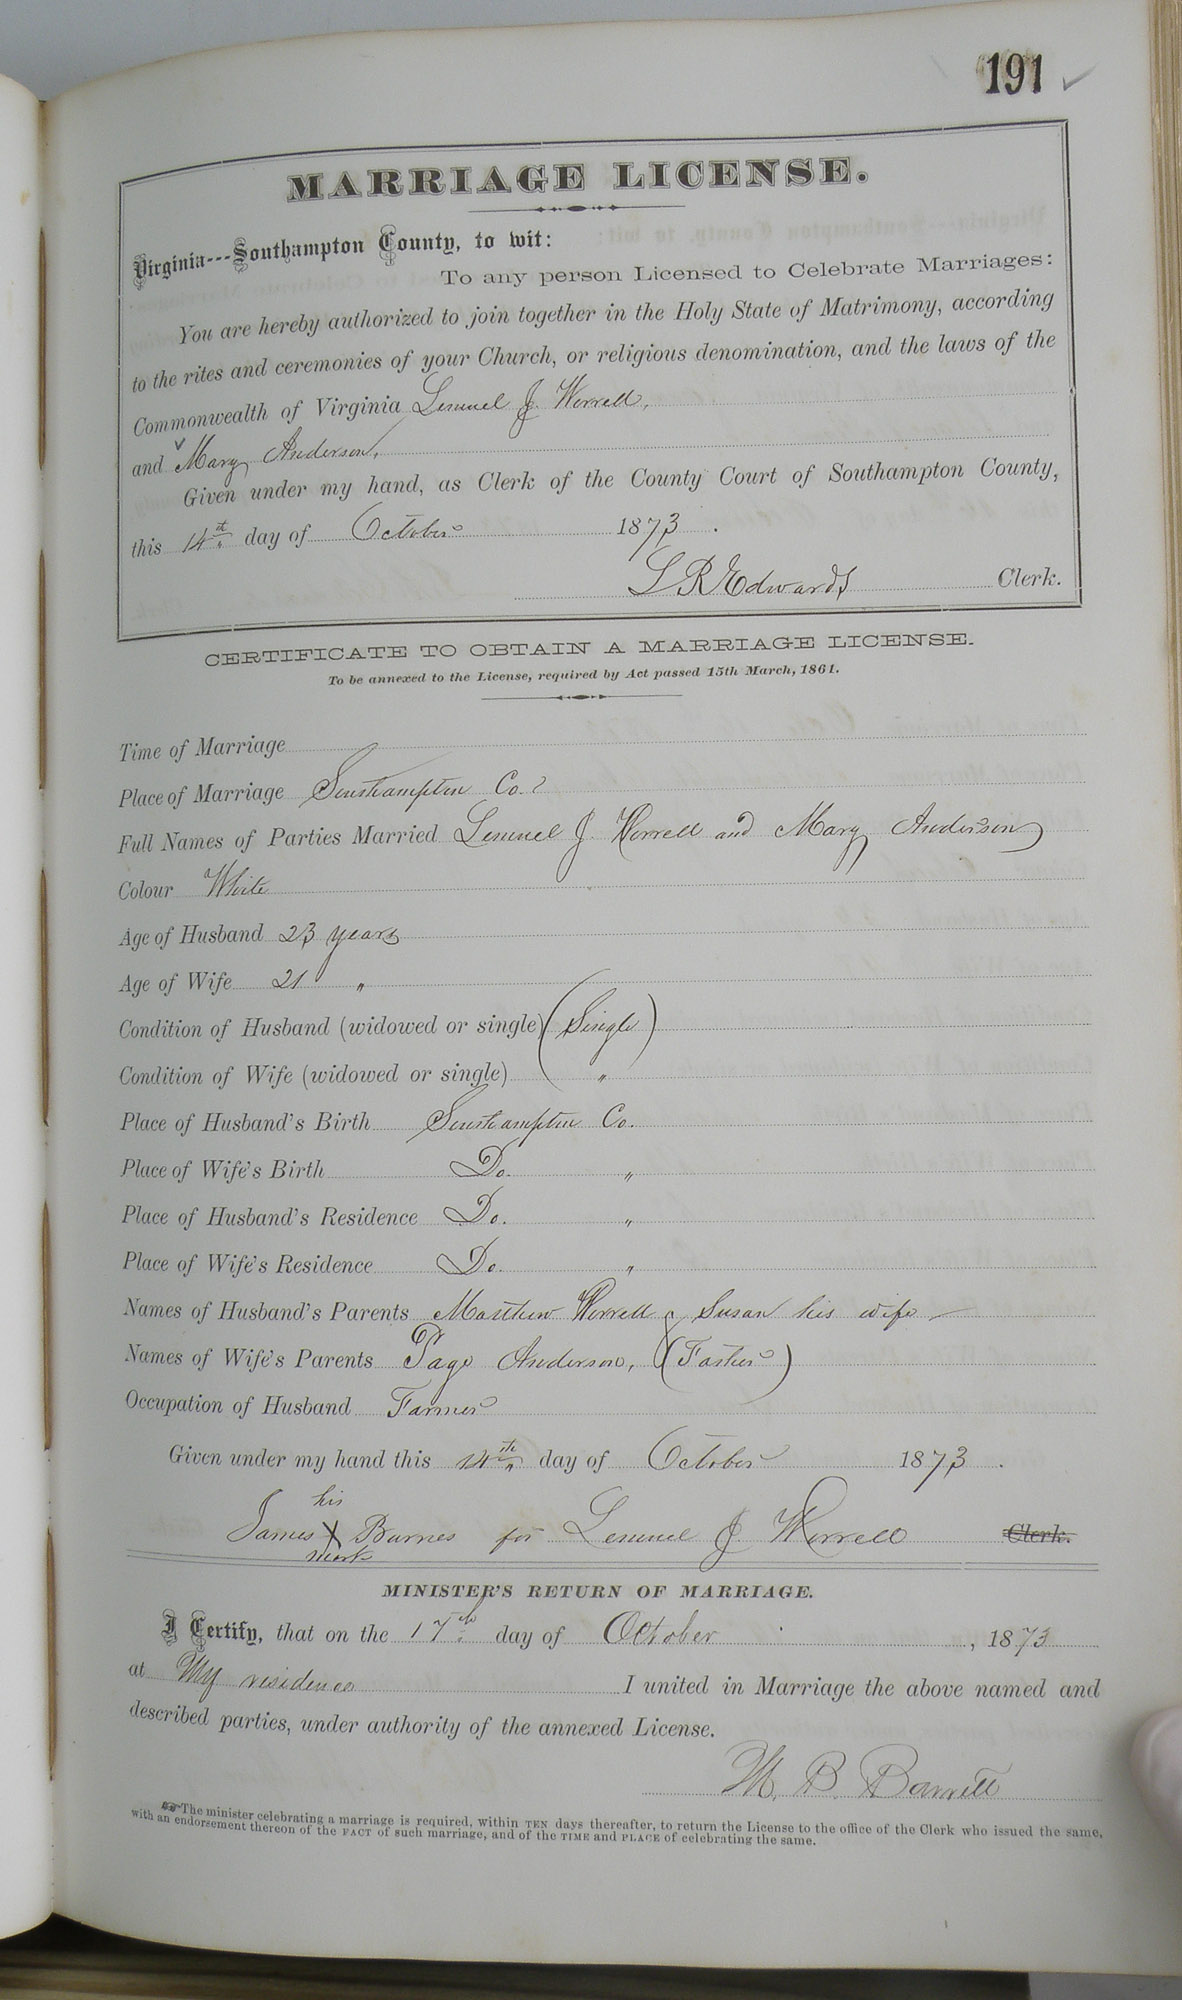 191
MARRIAGE LICENSE.
Virginia---Southampton County, to wit:
To any person Licensed to Celebrate Marriages:
You are hereby authorized to join together in the Holy State of Matrimony, according
to the rites and ceremonies of your Church, or religious denomination, and the laws of the
Commonwealth of Virginia Lemuel J. Worrell,
and Mary Anderson,
Given under my hand, as Clerk of the County Court of Southampton County,
this 14th day of October 1873.
L R Edwards Clerk.
CERTIFICATE TO OBTAIN A MARRIAGE LICENSE.
To be annexed to the License, required by Act passed 15th March, 1861.
Time of Marriage
Place of Marriage Southampton Co.
Full Names of Parties Married Lemuel J. Worrell and Mary Anderson
Colour White
Age of Husband 23 years
Age of Wife 21 "
Condition of Husband (widowed or single) (Single)
Condition of Wife (widowed or single) "
Place of Husband's Birth Southampton Co.
Place of Wife's Birth Do. "
Place of Husband's Residence Do. "
Place of Wife's Residence Do. "
Names of Husband's Parents Matthew Worrell & Susan his wife
Names of Wife's Parents Page Anderson, (Father)
Occupation of Husband Farmer
Given under my hand this 14th day of October 1873.
his
James X Barnes for Lemuel J. Worrell Clerk.
mark
MINISTER'S RETURN OF MARRIAGE.
I Certify, that on the 17th day of October, 1873
at My residence I united in Marriage the above named and
described parties, under authority of the annexed License.
M. B. Barrett
The minister celebrating a marriage is required, within TEN days thereafter, to return the License to the office of the Clerk who issued the same,
with an endorsement thereon of the FACT of such marriage, and of the TIME and PLACE of celebrating the same.